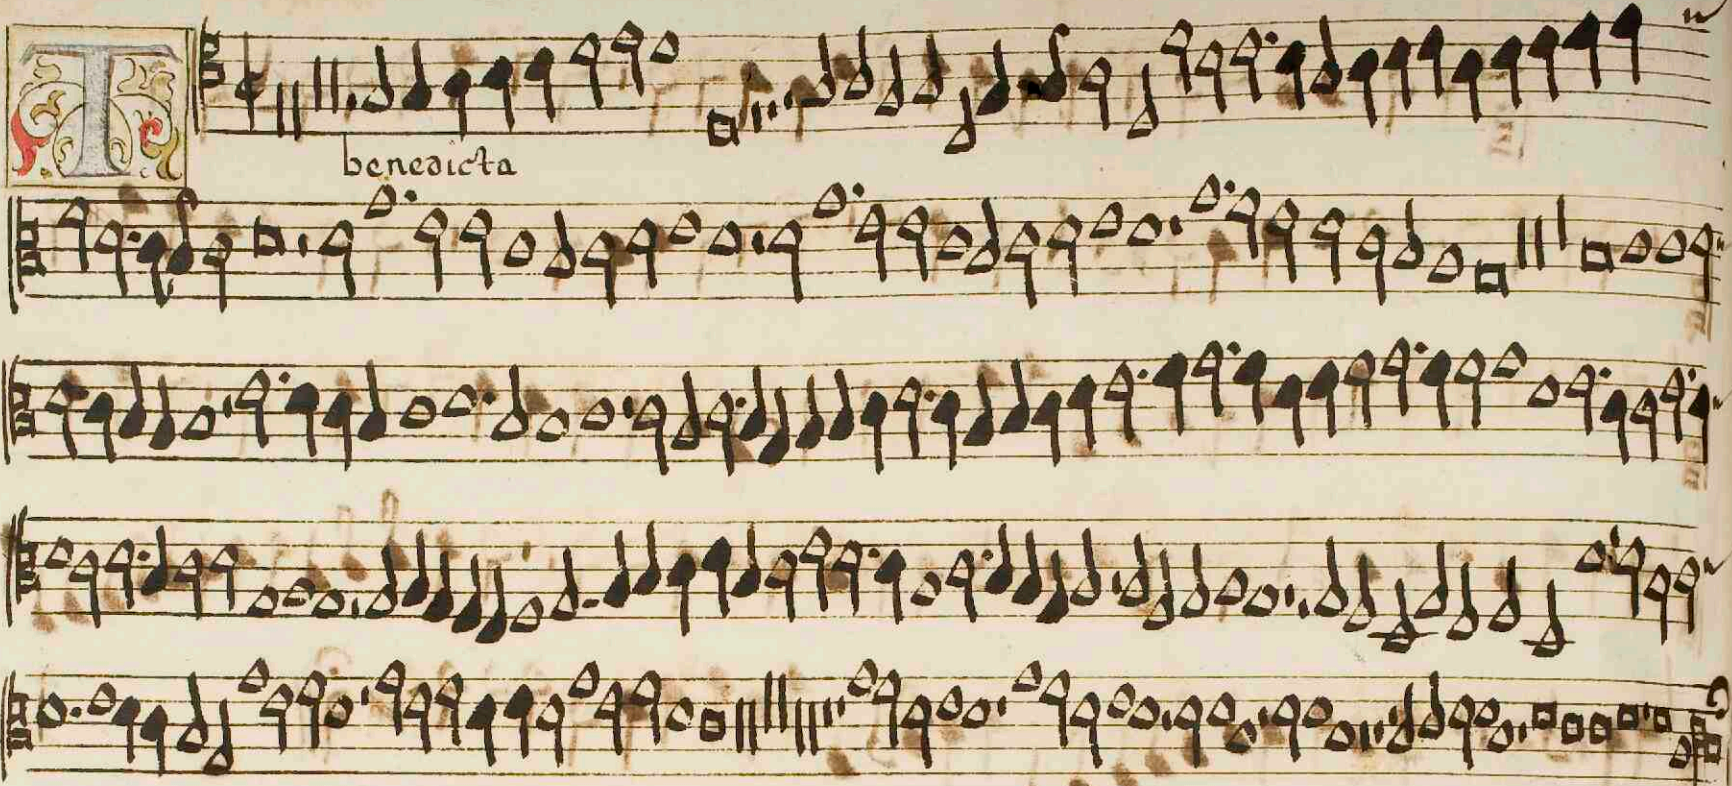 T
benedicta